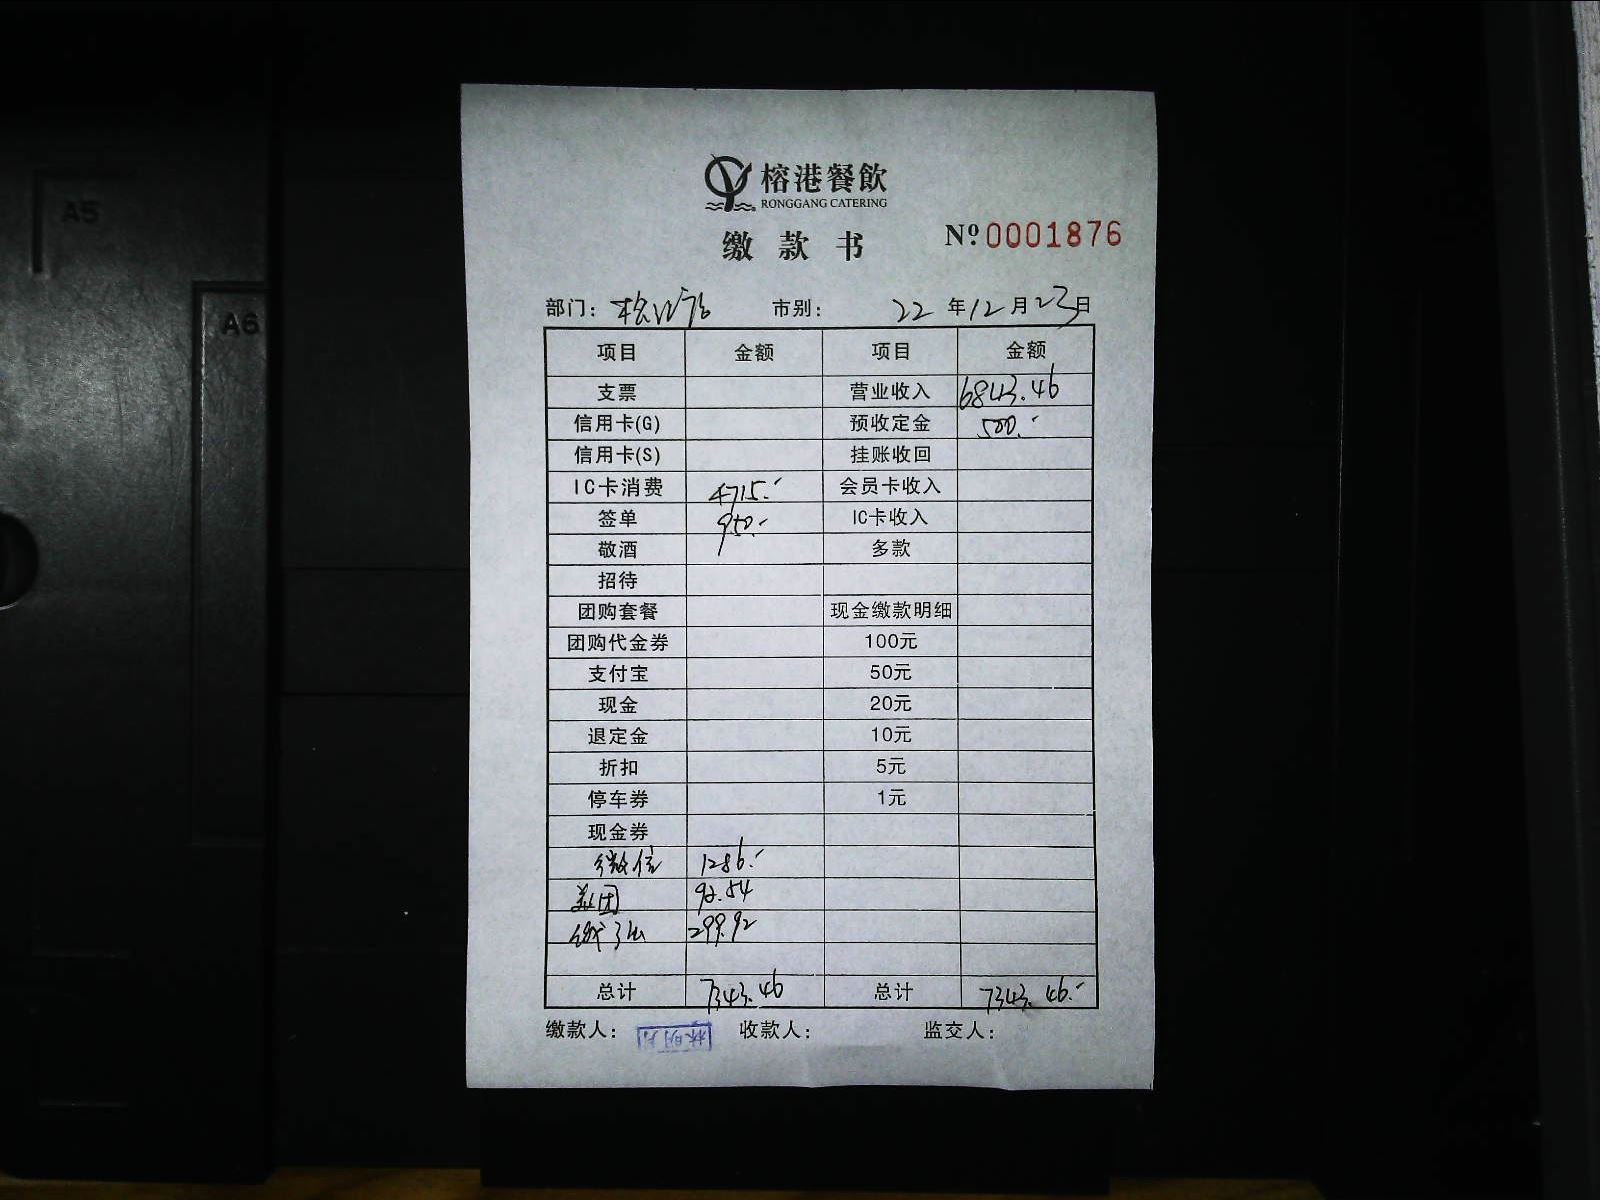 A5
A6
榕港餐飲
RONGGANG CATERING
缴款书
№0001876
部门： 市别： 22年12月23日
项目 金额 项目 金额
支票 营业收入 6843.46
信用卡(G) 预收定金 500.-
信用卡(S) 挂账收回
IC卡消费 4715.- 会员卡收入
签单 950.- IC卡收入
敬酒 多款
招待
团购套餐 现金缴款明细
团购代金券 100元
支付宝 50元
现金 20元
退定金 10元
折扣 5元
停车券 1元
现金券
微信 1286.-
美团 92.54
299.92
总计 7343.46 总计 7343.46.-
缴款人： 收款人： 监交人：